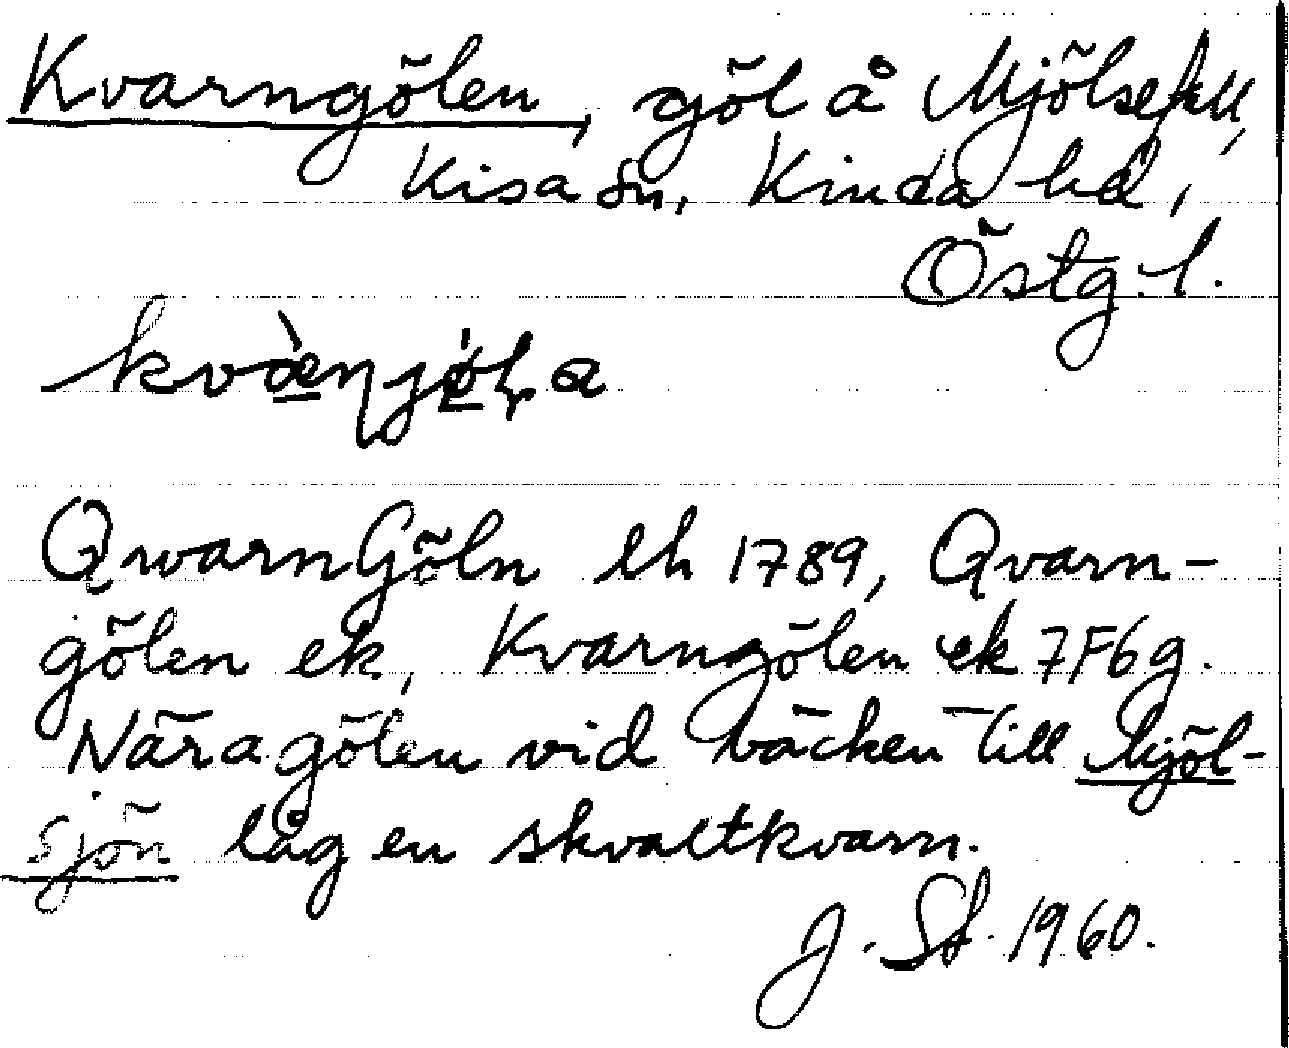 Kvarngölen, göl å Mjölsefall,
Kisa sn, Kinda hd,
Östg. l.
QwarnGöln lh 1789, Qvarn-
gölen ek, Kvarngölen ek 7F6g.
Nära gölen vid bäcken till Mjöl-
sjön låg en skvaltkvarn.
J. St. 1960.